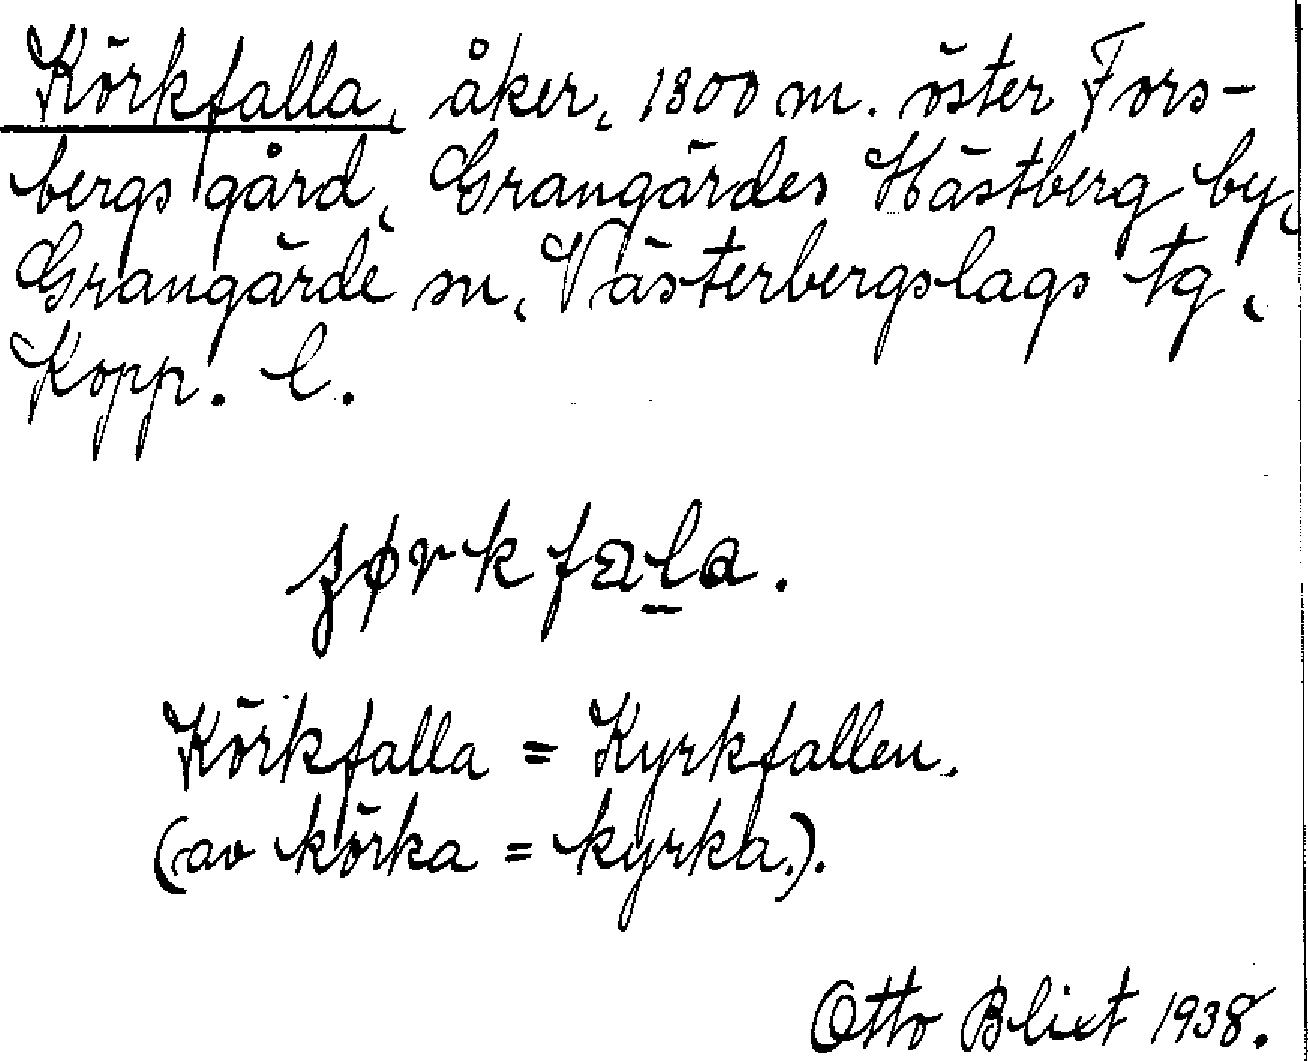 Körkfalla, åker, 1300 m. öster Fors-
bergs gård, Grangärdes Hästberg by,
Grangärde sn, Västerbergslags tg,
Kopp. l.
ʃørkfala.
Körkfalla = Kyrkfallen.
(av körka = kyrka.).
Otto Blixt 1938.